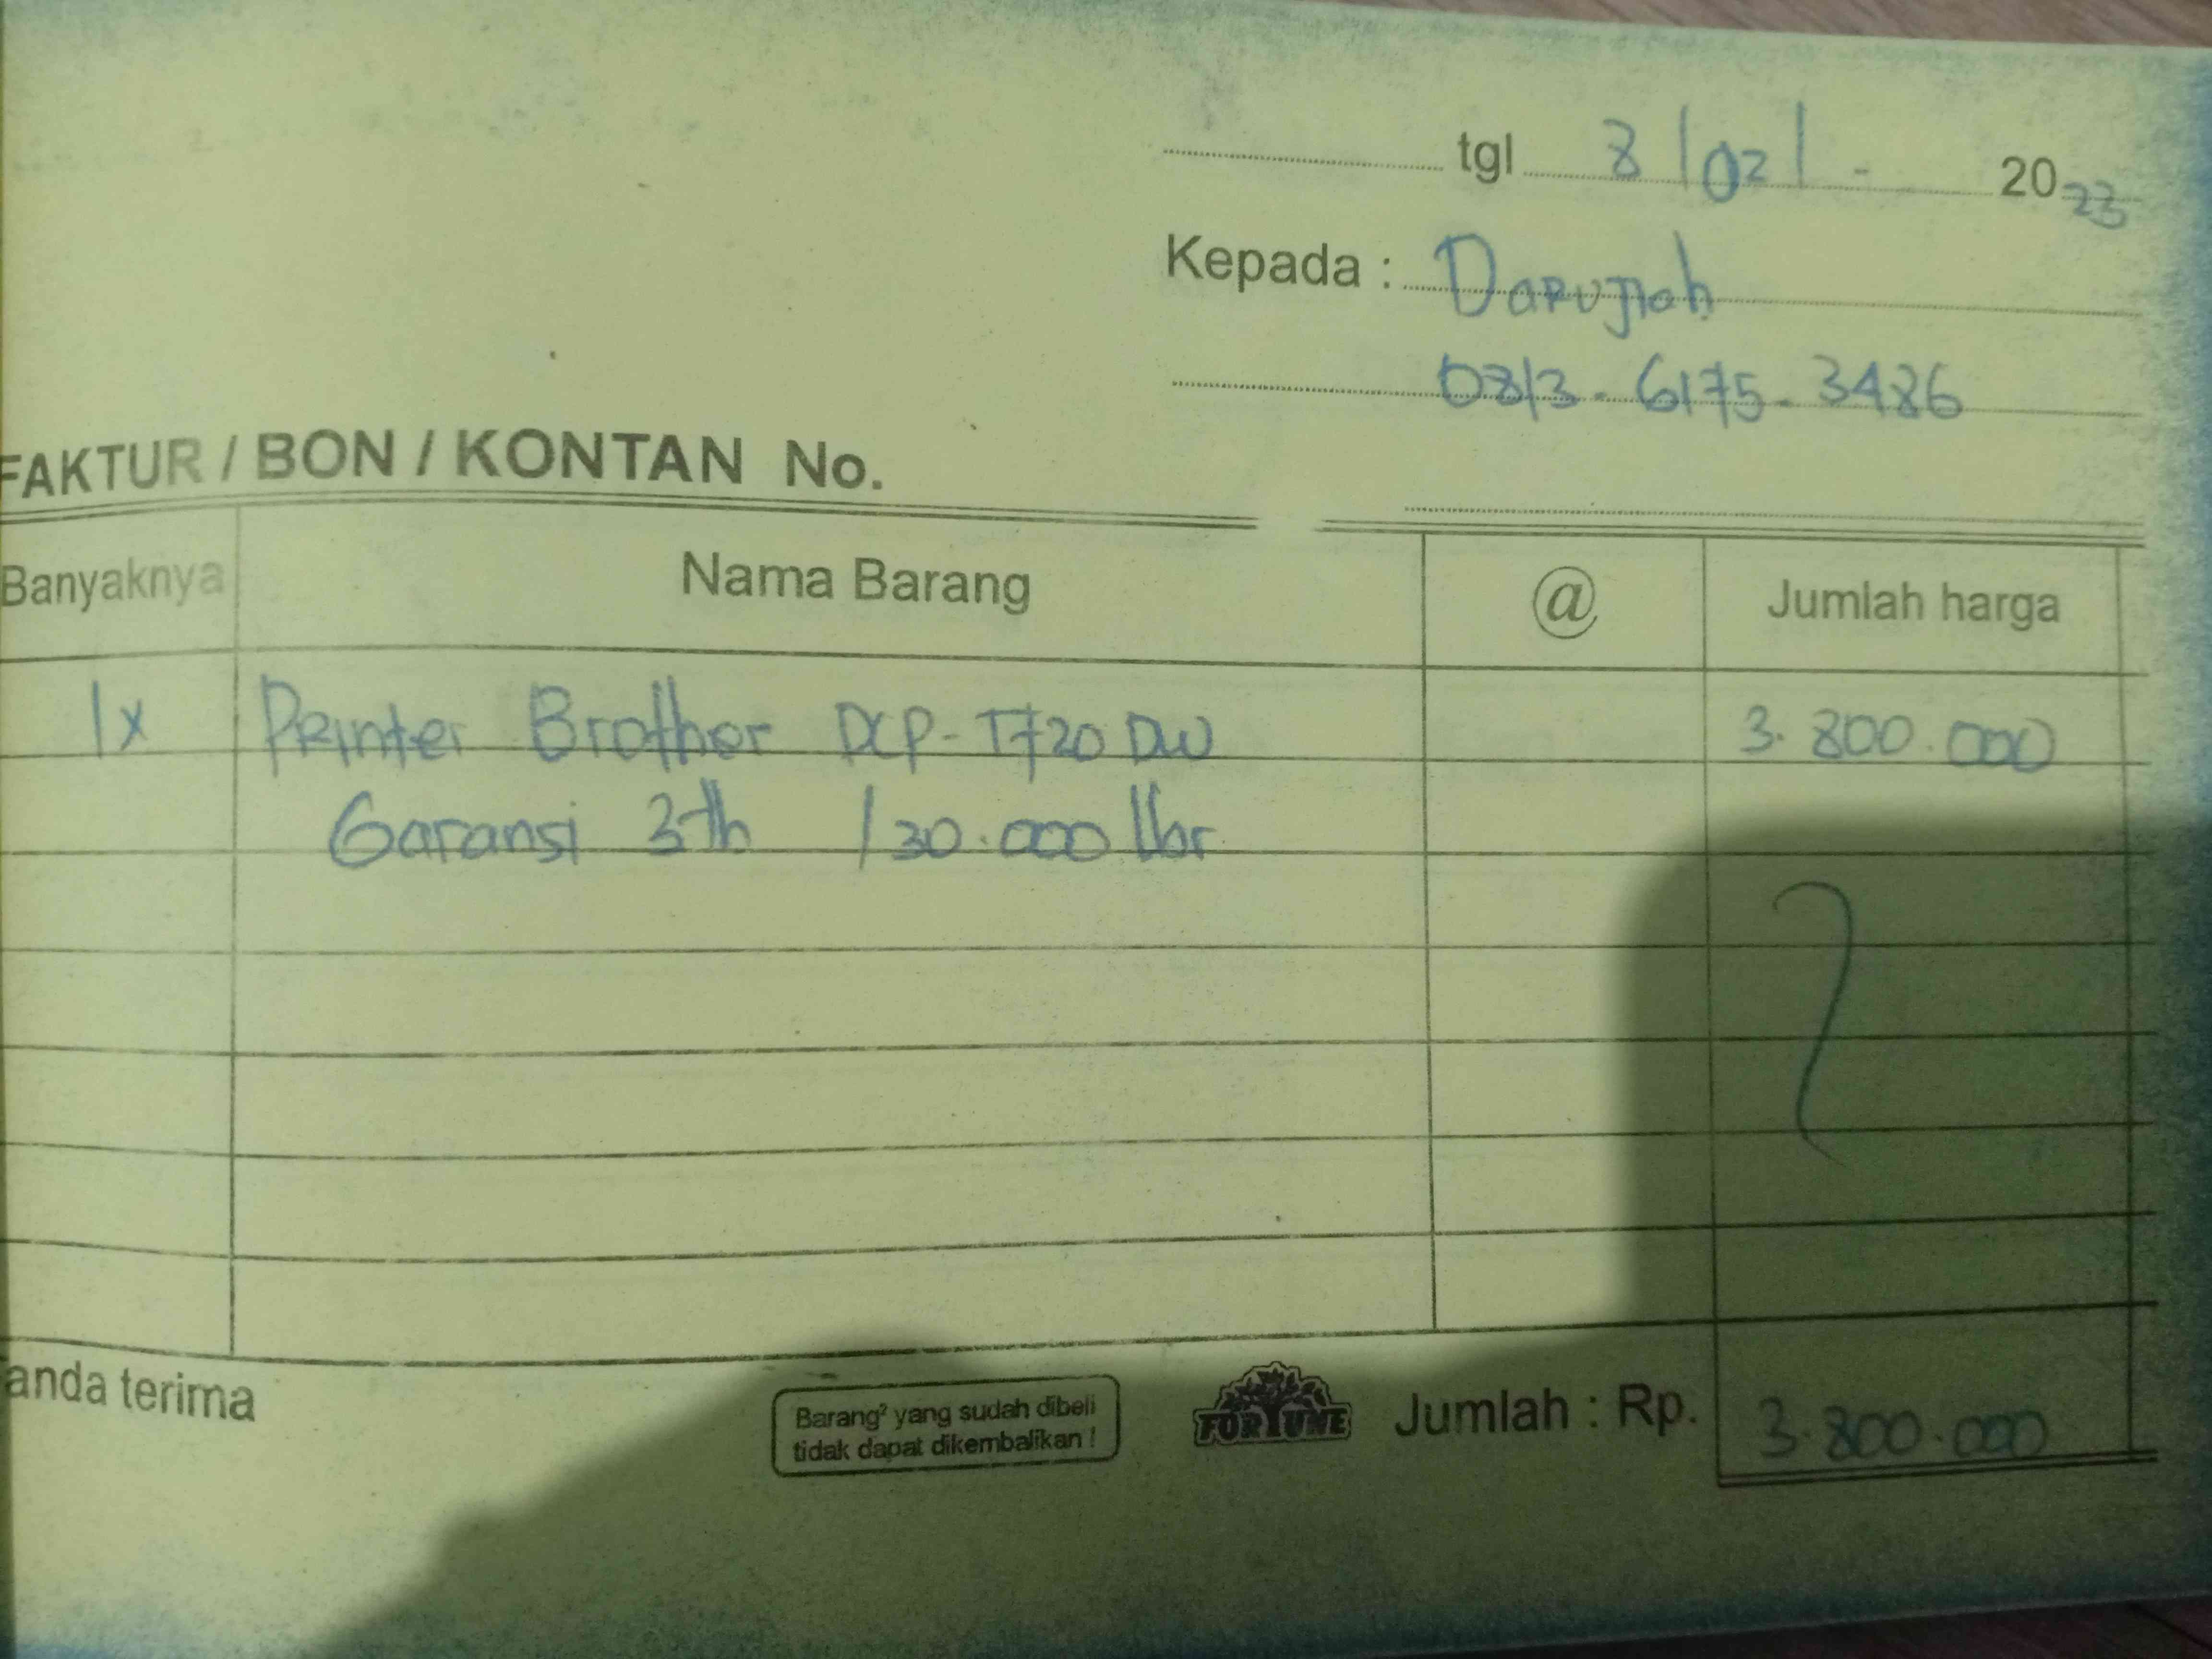 tgl 8/02/- 2023
Kepada : Darujiah
0813-6175-3486
FAKTUR / BON / KONTAN No.
Banyaknya Nama Barang @ Jumlah harga
1x Printer Brother DCP-T720DW 3.800.000
Garansi 3th /30.000 lbr
anda terima
Barang² yang sudah dibeli
tidak dapat dikembalikan !
FORTUNE Jumlah : Rp. 3.800.000